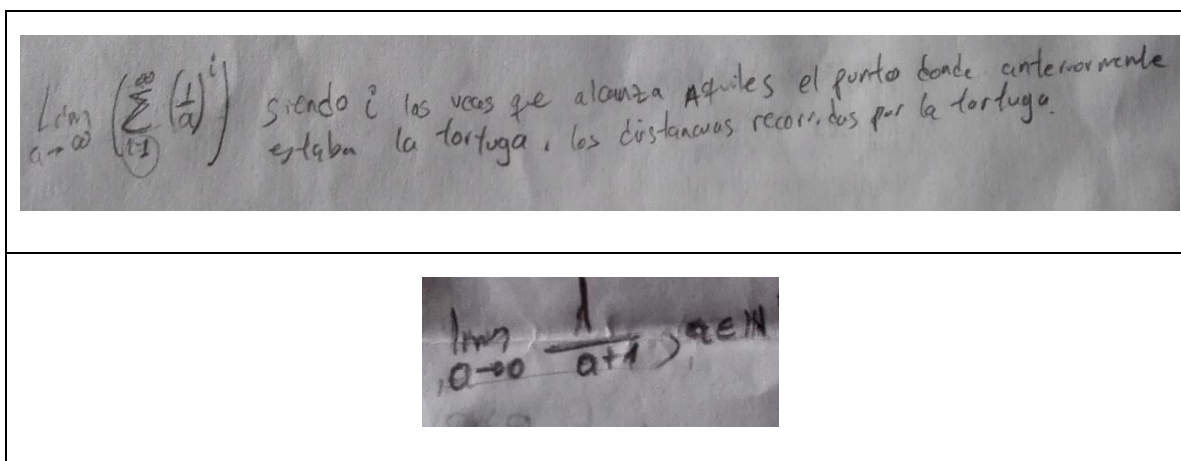 Lim a→∞ (∑ i=1 ∞ (1/a)^i) siendo i las veces que alcanza Aquiles el punto donde anteriormente
estaba la tortuga, los distancias recorridas por la tortuga.
lim a→∞ 1/(a+1), a ∈ ℕ